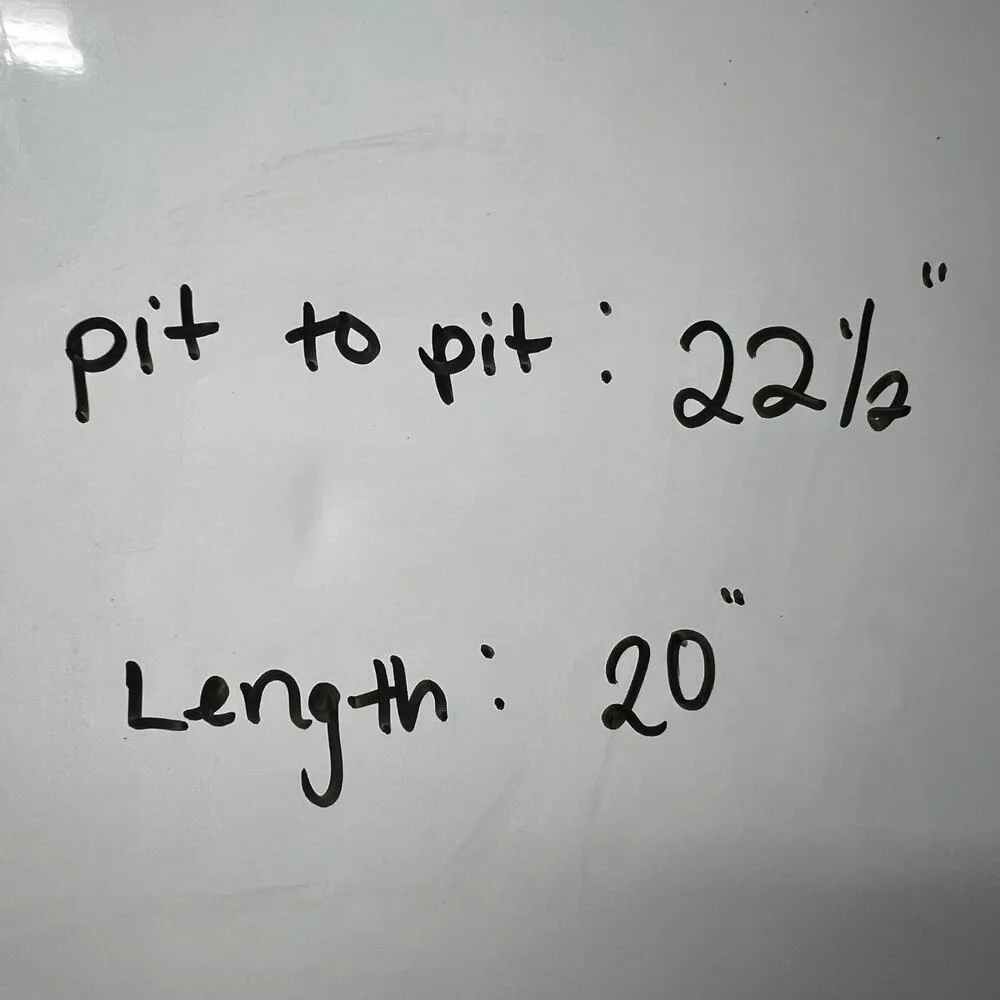 pit to pit: 22 1/2"
Length: 20"